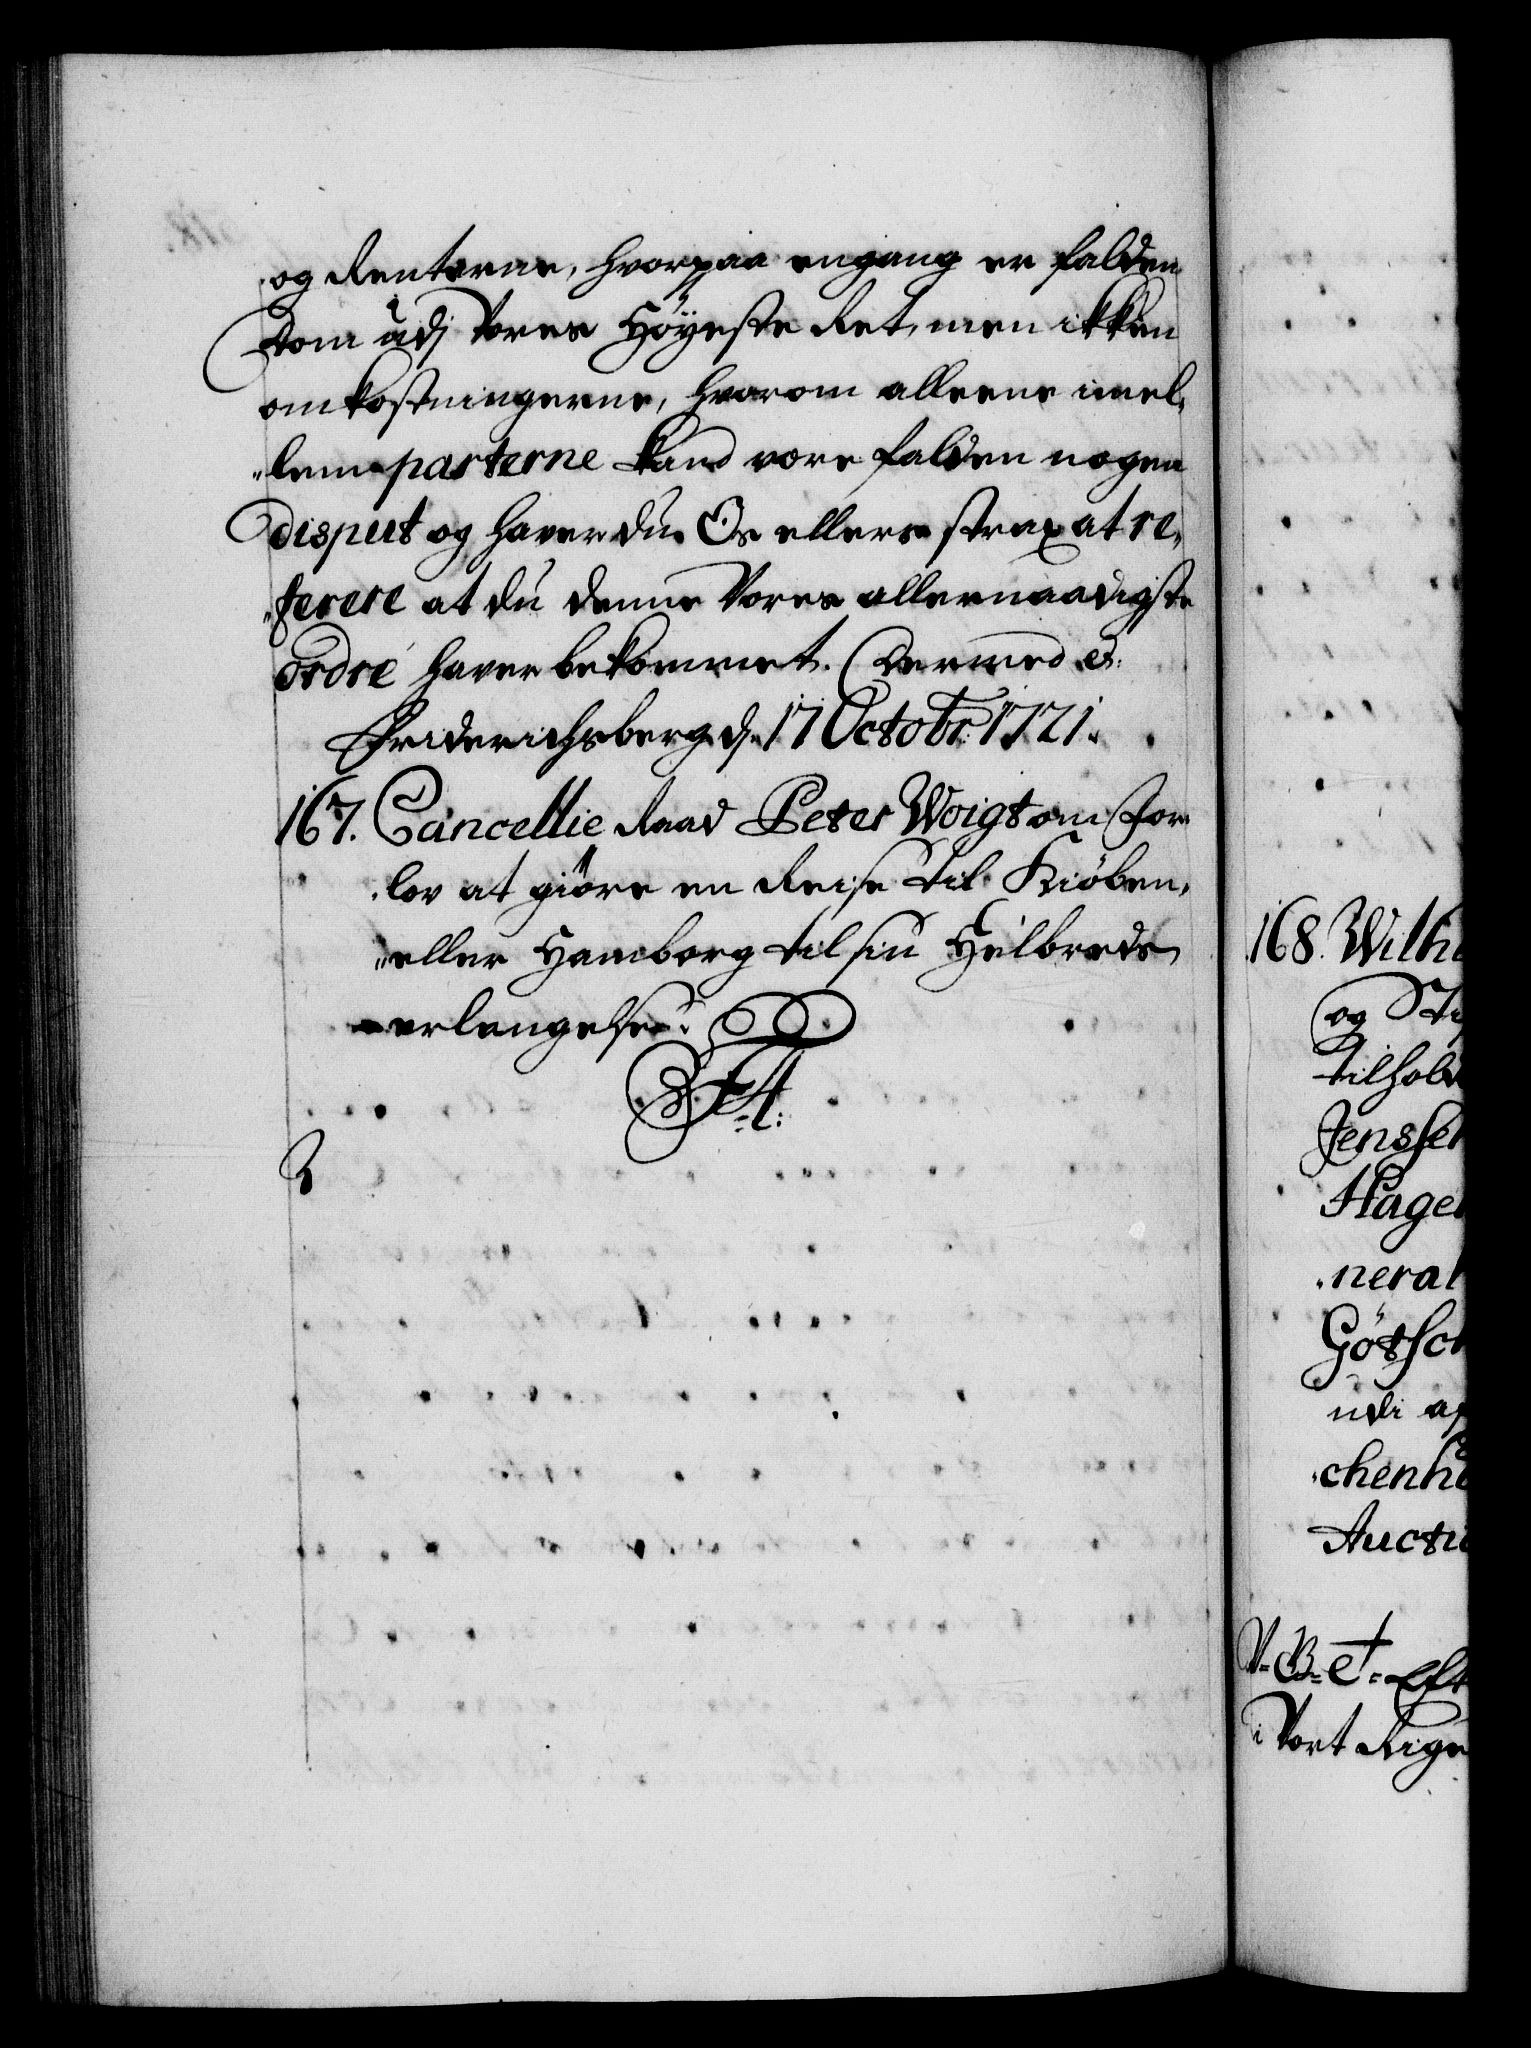 og Renterne, hvorpaa engang er falden
Dom udj Vores Höyeste Ret, men ikken
omkostningerne, hvorom alleene imel„
„lem parterne kand være falden nogen
disput og haver du Os ellers strax at re„
„ferere at du denne Vores allernaadigste
ordre haver bekommet. Dermed &:
Friderichsberg d. 17 Octobr: 1721.
167. Cancellie Raad Peter Woigt om For
lov at giöre en Reise til Kiöben„
„eller Hamborg til sin Helbreds
erlengelse.
168. Wilh
og
tilhold
Jenssen
Hagen
„neral
Götsch
udi af
„chenh
Auctio
V. B. C. Eft
i Vort Rige